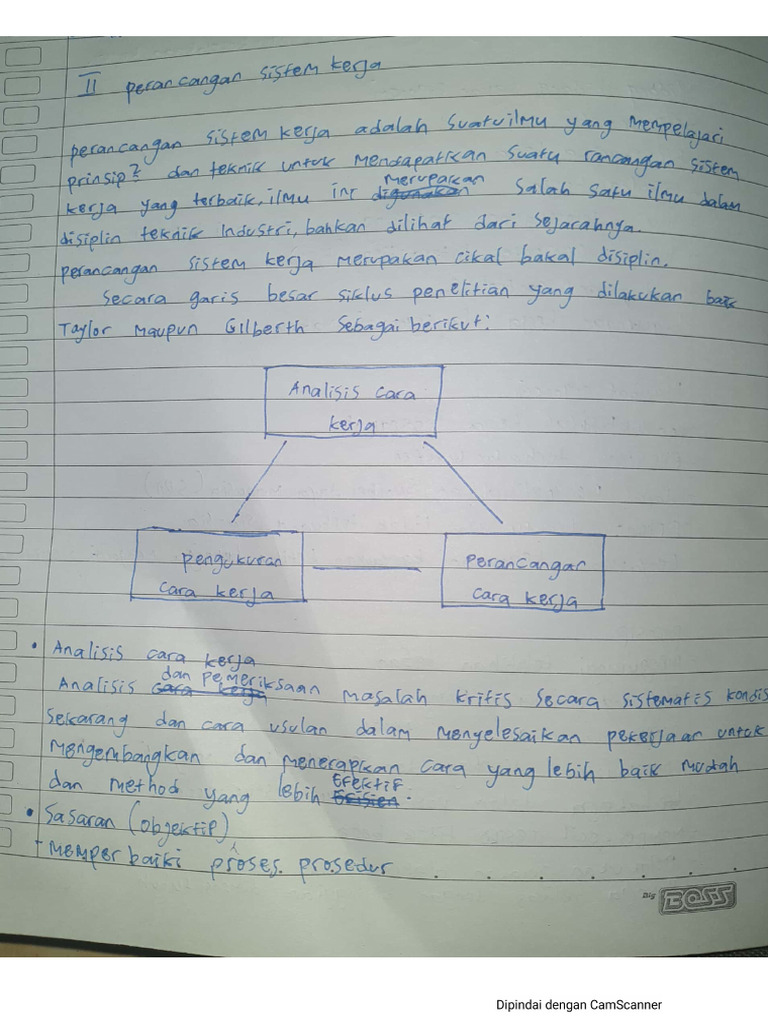 II perancangan sistem kerja
perancangan sistem kerja adalah suatu ilmu yang mempelajari
prinsip2 dan teknik untuk mendapatkan suatu rancangan sistem
kerja yang terbaik, ilmu ini digunakan merupakan salah satu ilmu dalam
disiplin teknik Industri, bahkan dilihat dari sejarahnya.
perancangan sistem kerja merupakan cikal bakal disiplin.
Secara garis besar siklus penelitian yang dilakukan baik
Taylor maupun Gilberth sebagai berikut:
Analisis cara
kerja
pengukuran
cara kerja
Perancangan
cara kerja
• Analisis cara kerja
Analisis cara kerja dan pemeriksaan masalah kritis secara sistematis kondisi
sekarang dan cara usulan dalam menyelesaikan pekerjaan untuk
mengembangkan dan menerapkan cara yang lebih baik mudah
dan method yang lebih Efisien Efektif.
• Sasaran (objektif)
+ memperbaiki proses. prosedur
Big BOSS
Dipindai dengan CamScanner